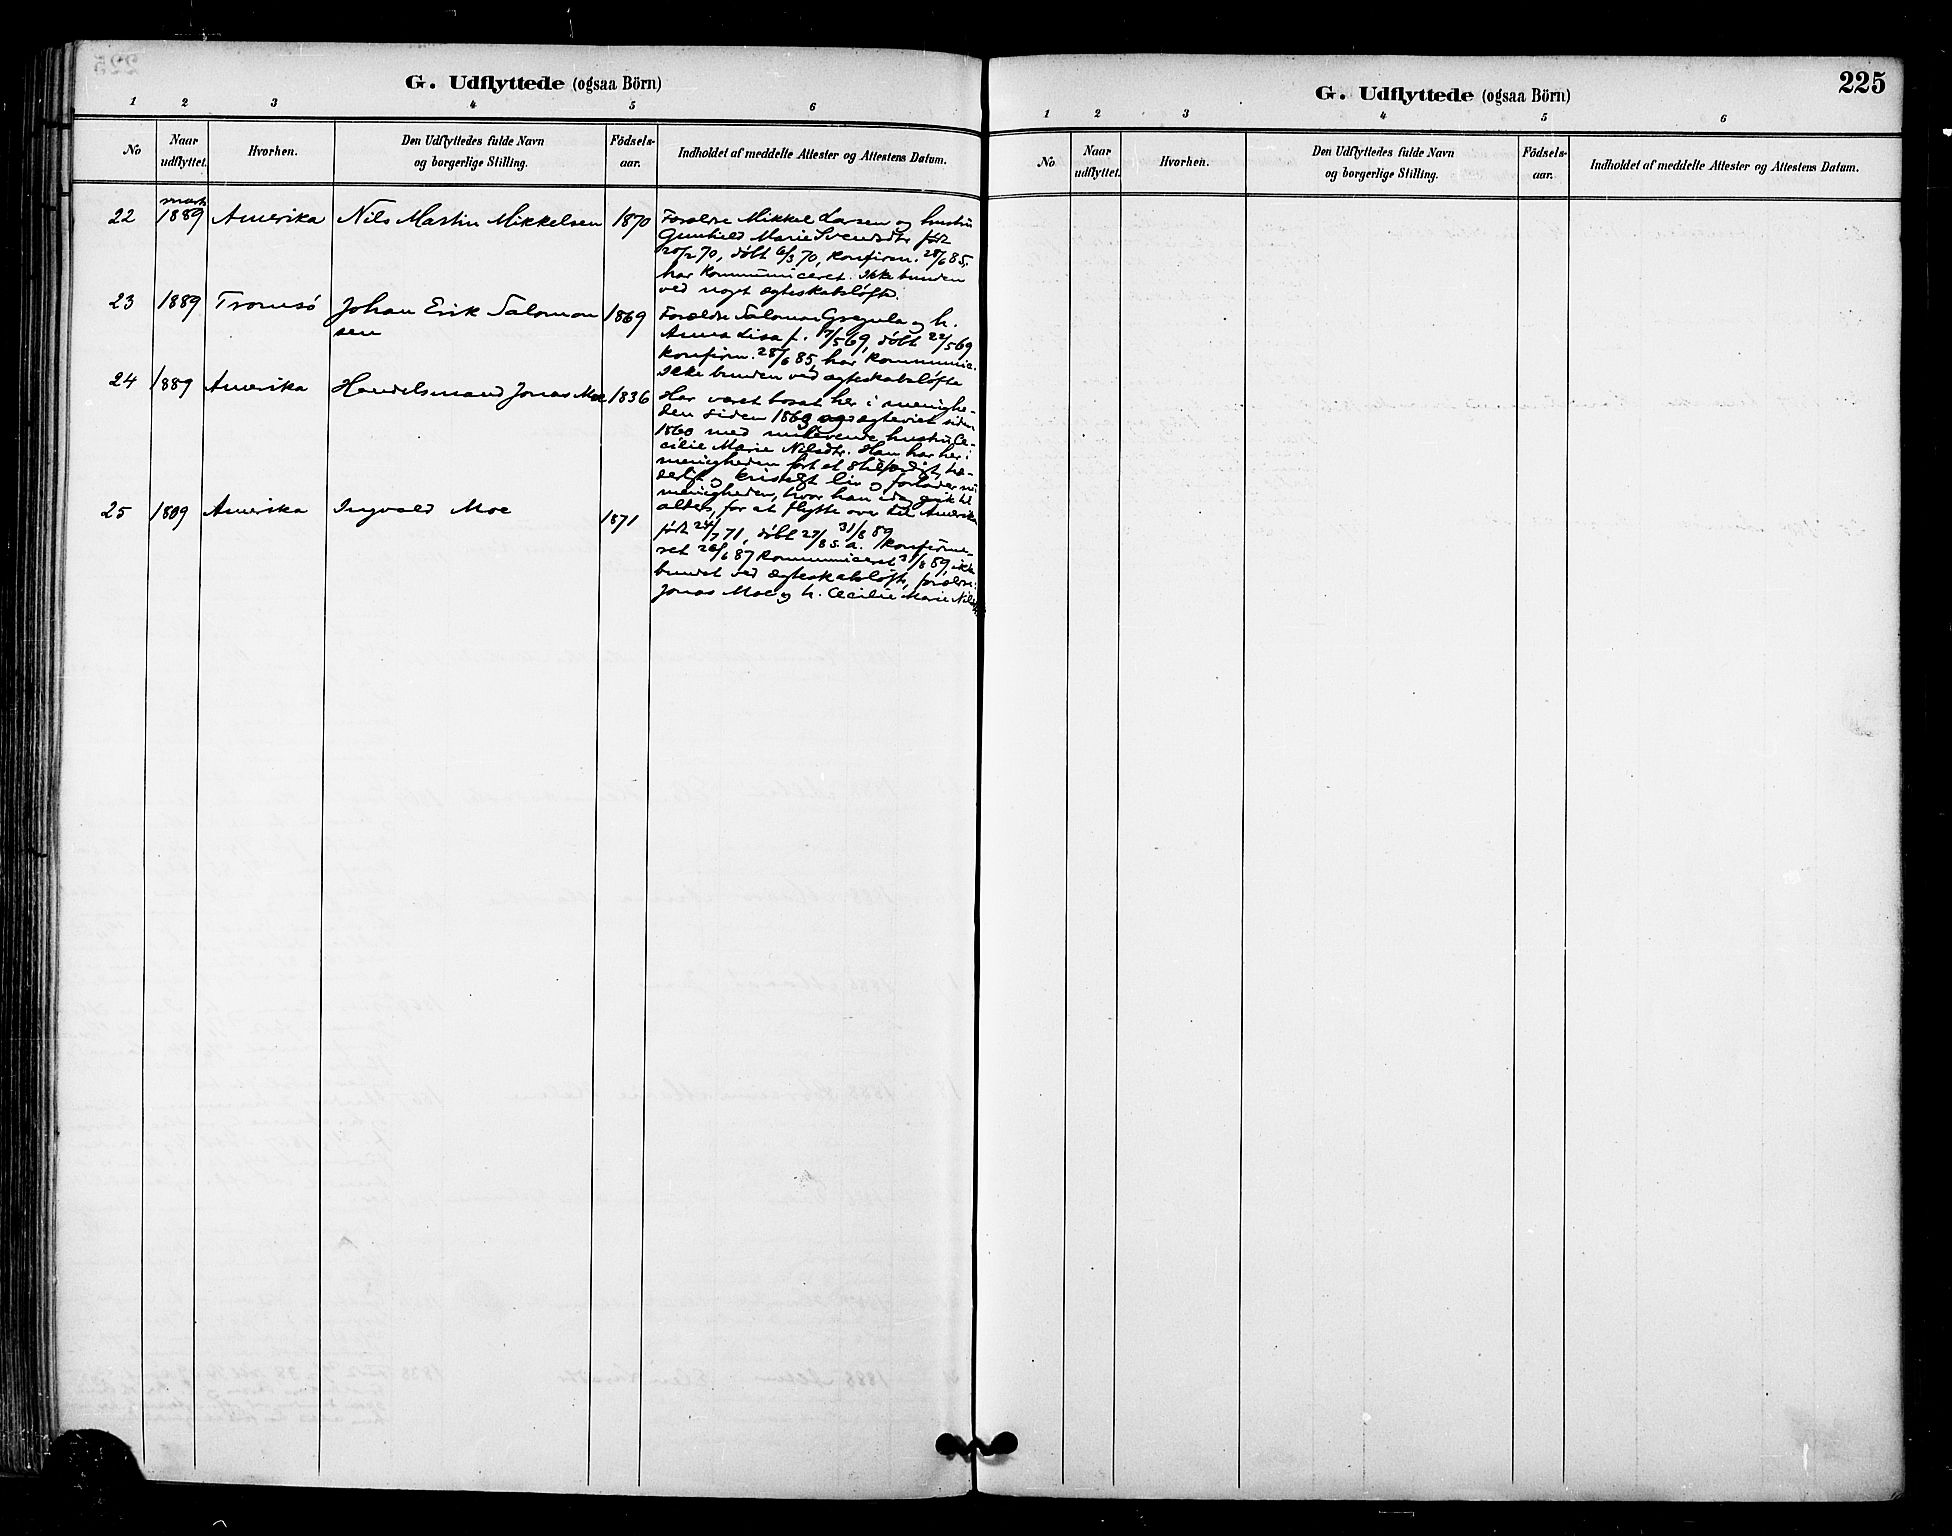 G. Udflyttede (ogsaa Börn)
1 2 3 4 5 6
No
Naar udflyttet.
Hvorhen.
Den Udflyttedes fulde Navn og borgerlige Stilling.
Födsels-aar.
Indholdet af meddelte Attester og Attestens Datum.
22 mart 1889 Amerika Nils Martin Mikkelsen 1870 Forældre Mikkel Larsen og hustru
Gunhild Marie Svendsdtr. født
20/2 70, døbt 6/3 70, konfirm. 28/6 85,
har kommuniceret. Ikke bunden
ved noget ægteskabsløfte.
23 1889 Tromsö Johan Erik Salomon 1869 Forældre Salomon Gregula og h.
sen Anna Lisa f. 17/5 69, döbt 22/5 69
konfirm. 28/6 85, har kommunic.
Ikke bunden ved ægteskabsløfte
24 1889 Amerika Handelsmand Jonas Moe 1836 Har været bosat her i menighe-
den siden 1860 og ægteviet siden
1860 med nulevende hustru Ce-
cilie Marie Nilsdtr. Han har her i
menigheden ført et stilfærdigt, hæ-
derligt og kristeligt liv og forlader nu
menigheden, hvor han idag gik til
alters, for at flytte over til Amerika
31/8 89
25 1889 Amerika Ingvald Moe 1871
født 24/7 71, döbt 27/8 s. a. konfirme-
ret 26/6 87 kommuniceret 31/8 89, ikke
bundet ved ægteskabsløfte, forældre:
Jonas Moe og h. Cecilie Marie Nilsdtr
G. Udflyttede (ogsaa Börn)
225
1 2 3 4 5 6
No
Naar udflyttet.
Hvorhen.
Den Udflyttedes fulde Navn og borgerlige Stilling.
Födsels-aar.
Indholdet af meddelte Attester og Attestens Datum.